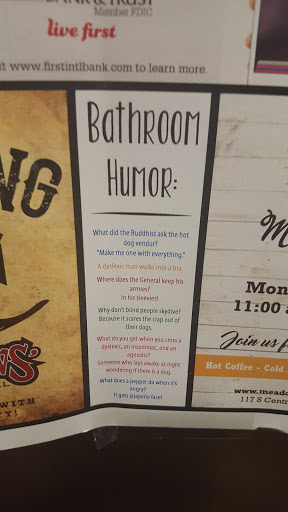 BANK & TRUST
Member FDIC
live first
it www.firstintlbank.com to learn more.
Bathroom
Humor:
What did the Buddhist ask the hot
dog vendor?
"Make me one with everything."
A dyslexic man walks into a bra.
Where does the General keep his
armies?
In his sleevies!
Why don't blind people skydive?
Because it scares the crap out of
their dogs.
What do you get when you cross a
dyslexic, an insomniac, and an
agnostic?
Someone who lays awake at night
wondering if there is a dog.
What does a pepper do when it's
angry?
It gets jalapeño face!
NG
WITH
Y!
M
Mon
11:00 a
Join us f
Hot Coffee - Cold
www.meado
117 S Centr